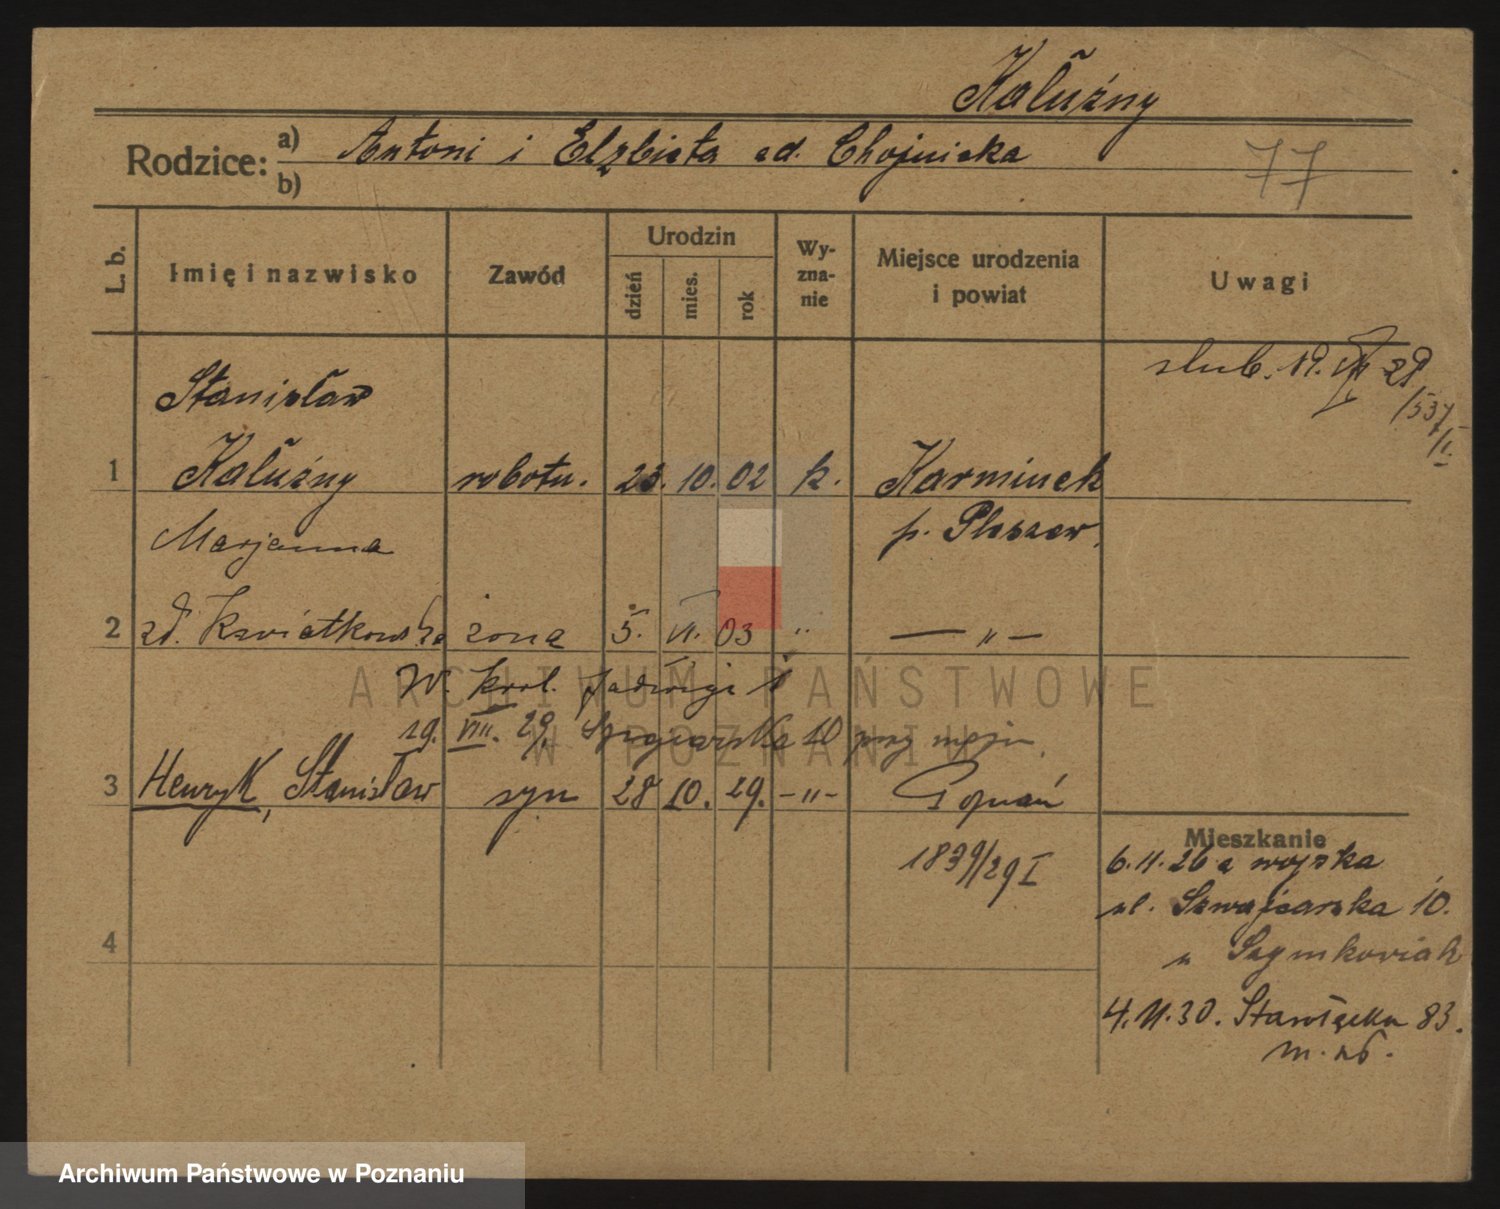 Kałużny
Rodzice: a) Antoni i Elżbieta zd. Chojnicka
b)
77
L. b. Imię i nazwisko Zawód Urodzin Wy-zna-nie Miejsce urodzenia i powiat Uwagi
dzień mies. rok
ślub. 19. 29
1537/II.
Stanisław
1 Kałużny robotn. 23. 10. 02 k. Karminek
p. Pleszew
Marjanna
2 zd. Kwiatkowska żona 5. VI. 03 " — " —
W. król. Jadwigi 1
19. VIII. 29. Szwajcarska 10 przy mężu
3 Henryk, Stanisław syn 28 10. 29. - " - Poznań
1839/29 I
Mieszkanie
6. 11. 26 z wojska
ul. Szwajcarska 10.
u Szymkowiak
4
4. 11. 30. Starołęcka 83.
ARCHIWUM PAŃSTWOWE
W POZNANIU
Archiwum Państwowe w Poznaniu